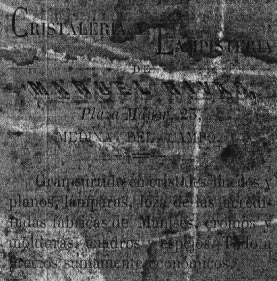 CRISTALERIA Y
LAMPISTERIA
DE
MANUEL RIVAS,
Plaza Mayor, 25,
MEDINA DEL CAMPO.
Gran surtido en cristales huecos y
planos, lámparas, loza de las acredi-
tadas fábricas de Manises, cromos y
molduras, cuadros y espejos. Todo á
precios sumamente económicos.